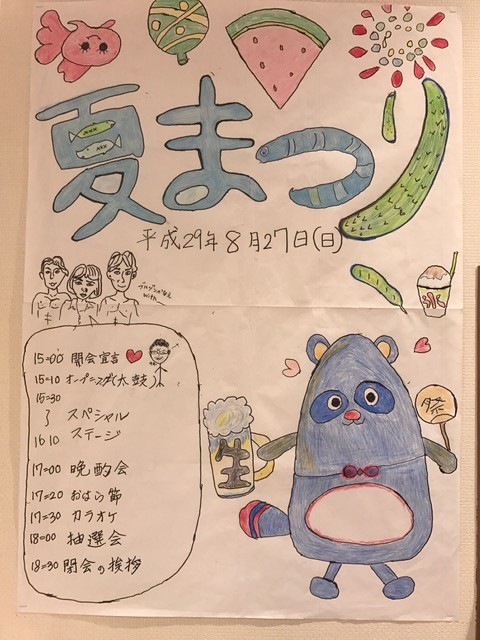 夏まつり
平成29年8月27日(日)
with
15=00 開会宣言
15=10 オープニング(太鼓)
15=30
〜 スペシャル
16 10 ステージ
17=00 晩酌会
17=20 おはら節
17=30 カラオケ
18=00 抽選会
18=30 閉会の挨拶
生
祭
氷